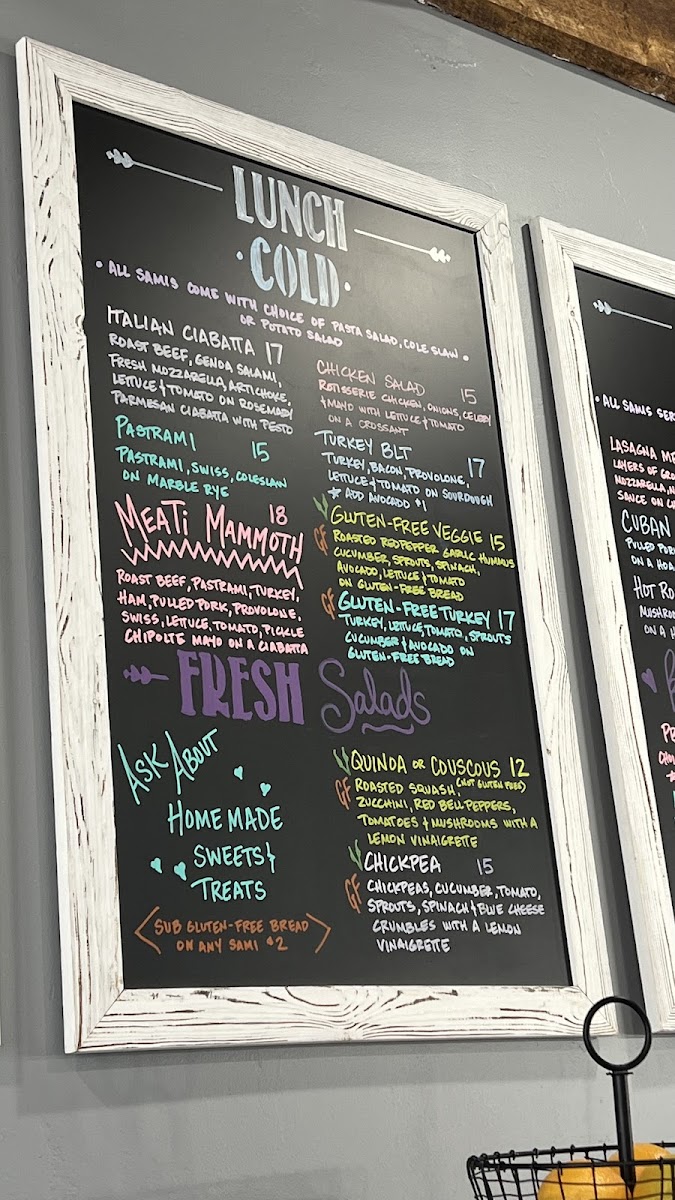 LUNCH
·COLD·
• ALL SAMIS COME WITH CHOICE OF PASTA SALAD, COLE SLAW •
OR POTATO SALAD
ITALIAN CIABATTA 17
ROAST BEEF, GENOA SALAMI,
FRESH MOZZARELLA, ARTICHOKE,
LETTUCE & TOMATO ON ROSEMARY
PARMESAN CIABATTA WITH PESTO
PASTRAMI 15
PASTRAMI, SWISS, COLESLAW
ON MARBLE RYE
MEATI MAMMOTH 18
ROAST BEEF, PASTRAMI, TURKEY,
HAM, PULLED PORK, PROVOLONE,
SWISS, LETTUCE, TOMATO, PICKLE
CHIPOLTE MAYO ON A CIABATTA
CHICKEN SALAD 15
ROTISSERIE CHICKEN, ONIONS, CELERY
& MAYO WITH LETTUCE & TOMATO
ON A CROSSANT
TURKEY BLT 17
TURKEY, BACON, PROVOLONE,
LETTUCE & TOMATO ON SOURDOUGH
☆ ADD AVOCADO $1
GLUTEN-FREE VEGGIE 15
GF ROASTED RED PEPPER GARLIC HUMMUS
CUCUMBER, SPROUTS, SPINACH,
AVOCADO, LETTUCE & TOMATO
ON GLUTEN-FREE BREAD
GF GLUTEN-FREE TURKEY 17
TURKEY, LETTUCE, TOMATO, SPROUTS
CUCUMBER & AVOCADO ON
GLUTEN-FREE BREAD
FRESH Salads
ASK ABOUT
HOMEMADE
SWEETS &
TREATS
<SUB GLUTEN-FREE BREAD
ON ANY SAMI $2>
QUINOA OR COUSCOUS 12
(NOT GLUTEN FREE)
GF ROASTED SQUASH,
ZUCCHINI, RED BELL PEPPERS,
TOMATOES & MUSHROOMS WITH A
LEMON VINAIGRETTE
CHICKPEA 15
GF CHICKPEAS, CUCUMBER, TOMATO,
SPROUTS, SPINACH & BLUE CHEESE
CRUMBLES WITH A LEMON
VINAIGRETTE
• ALL SAMIS SER
LASAGNA ME
LAYERS OF GRO
MOZZARELLA,
SAUCE ON
CUBAN
PULLED POR
ON A HOA
HOT RO
MUSHROO
ON A H